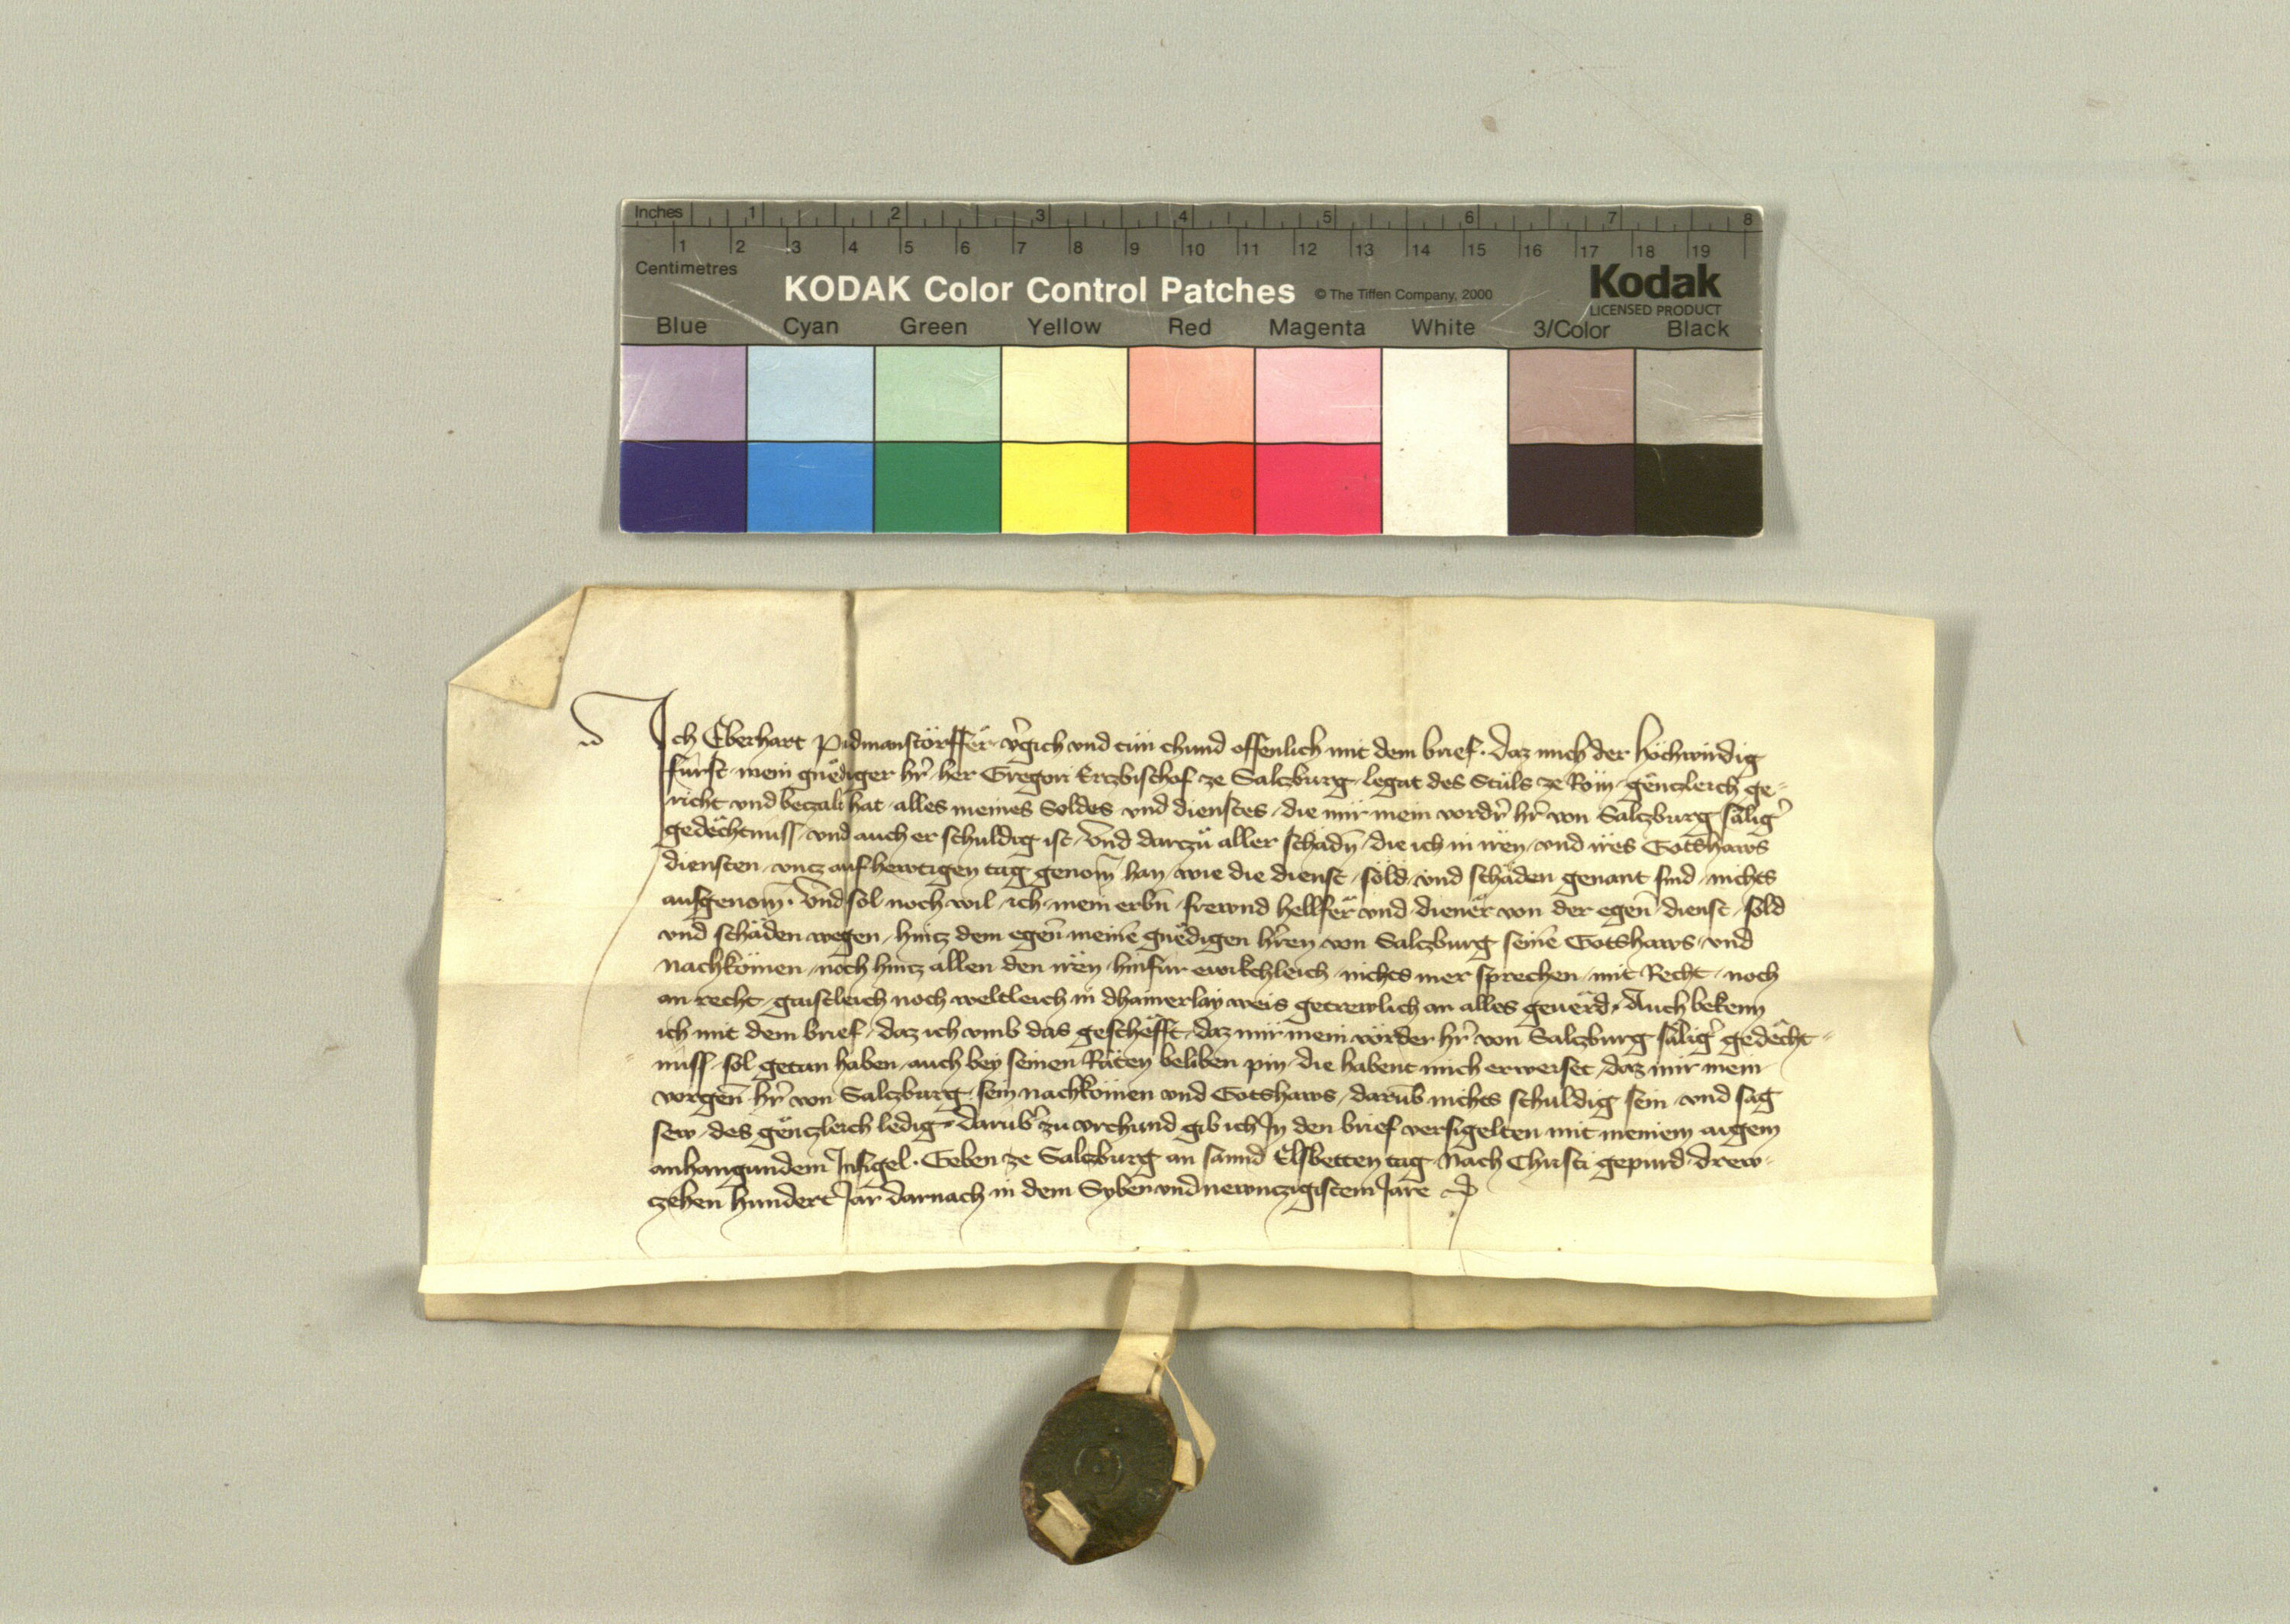 Inches 1 2 3 4 5 6 7 8
1 2 3 4 5 6 7 8 9 10 11 12 13 14 15 16 17 18 19
Centimetres
KODAK Color Control Patches © The Tiffen Company, 2000 Kodak
LICENSED PRODUCT
Blue Cyan Green Yellow Red Magenta White 3/Color Black
Ich Eberhart Pidmanstörffer v̾gich vnd tůn chund offenlich mit dem brief. daz mich der höchwirdig
fürst mein gnëdiger hr̄ her Gregori Erczbischof ze Salczburg legat des Stůls ze Röm gënczleich ge-
richt vnd beczalt hat alles meines Soldes vnd dienstes die mir mein vordr̄ hr̄ von Salczburg sälig̾
gedëchtnuss vnd auch er schuldig ist vnd darczů aller schädn̄ die ich in iren vnd ires Gotshaws
diensten vncz auf hewtigen tag genom̄ han wie die dienst söld vnd schäden genant sind nichts
ausgenom̄. Vnd sol noch wil ich mein erbn̄ frewnd hellfer vnd diener von der egen̄ dienst sold
vnd schäden wegen hincz dem egen̄ meinē gnëdigen hr̄en von Salczburg seinē Gotshaws vnd
nachkömen noch hincz allen den iren hinfür ewikchleich nichts mer sprechen mit Recht noch
an recht gaistleich noch weltleich in dhainerlay weis getrewlich an alles geuërd. Auch bekenn
ich mit dem brief daz ich vmb das geschëfft daz mir mein vörder hr̄ von Salczburg sälig̾ gedëcht-
nuss sol getan haben auch bey seinen Räten beliben pin die habent mich erweiset daz mir mein
vorgen̄ hr̄ von Salczburg sein nachkömen vnd Gotshaws darūb nichts schuldig sein vnd sag
sew des gënczleich ledig. Darūb̾ zu vrchund gib ich In den brief versigelten mit meinem aigem
anhangundem Insigel. Geben ze Salczburg an sannd Elsbetten tag Nach Christi gepurd drew-
czehen hundert Jar darnach in dem Syben vnd newnczigistem Jare